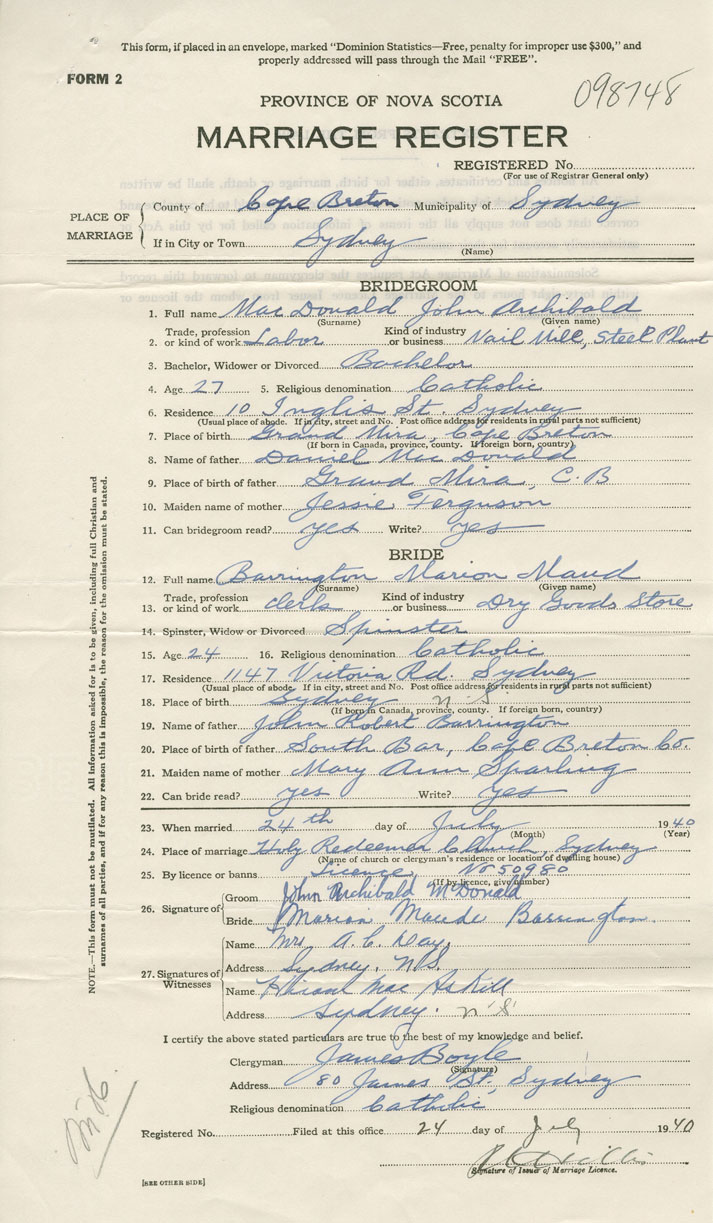 This form, if placed in an envelope, marked "Dominion Statistics—Free, penalty for improper use $300," and
properly addressed will pass through the Mail "FREE".
FORM 2
098748
PROVINCE OF NOVA SCOTIA
MARRIAGE REGISTER
REGISTERED No.
(For use of Registrar General only)
PLACE OF MARRIAGE
County of Cape Breton Municipality of Sydney
If in City or Town Sydney
(Name)
BRIDEGROOM
1. Full name MacDonald John Archibald
(Surname) (Given name)
2. Trade, profession or kind of work Labor Kind of industry or business Nail Mill, Steel Plant
3. Bachelor, Widower or Divorced Bachelor
4. Age 27 5. Religious denomination Catholic
6. Residence 10 Inglis St. Sydney
(Usual place of abode. If in city, street and No. Post office address for residents in rural parts not sufficient)
7. Place of birth Grand Mira, Cape Breton
(If born in Canada, province, county. If foreign born, country)
8. Name of father Daniel MacDonald
9. Place of birth of father Grand Mira, C.B
10. Maiden name of mother Jessie Ferguson
11. Can bridegroom read? yes Write? yes
BRIDE
12. Full name Barrington Marion Maud
(Surname) (Given name)
13. Trade, profession or kind of work clerk Kind of industry or business Dry Goods Store
14. Spinster, Widow or Divorced Spinster
15. Age 24 16. Religious denomination Catholic
17. Residence 1147 Victoria Rd. Sydney
(Usual place of abode. If in city, street and No. Post office address for residents in rural parts not sufficient)
18. Place of birth Sydney N S
(If born in Canada, province, county. If foreign born, country)
19. Name of father John Robert Barrington
20. Place of birth of father South Bar, Cape Breton Co.
21. Maiden name of mother Mary Ann Sparling
22. Can bride read? yes Write? yes
23. When married 24th day of July 1940
(Month) (Year)
24. Place of marriage Holy Redeemer Church, Sydney
(Name of church or clergyman's residence or location of dwelling house)
25. By licence or banns Licence, No 50980
(If by licence, give number)
26. Signature of
Groom John Archibald McDonald
Bride Marion Maude Barrington
27. Signatures of Witnesses
Name Mrs. A. C. Day
Address Sydney, N.S.
Name Hiram MacAskill
Address Sydney. N S
I certify the above stated particulars are true to the best of my knowledge and belief.
Clergyman James Boyle
(Signature)
Address 80 James St, Sydney
Religious denomination Catholic
Registered No. Filed at this office 24 day of July 1940
Signature of Issuer of Marriage Licence.
[SEE OTHER SIDE]
NOTE.—This form must not be mutilated. All information asked for is to be given, including full Christian and
surnames of all parties, and if for any reason this is impossible, the reason for the omission must be stated.